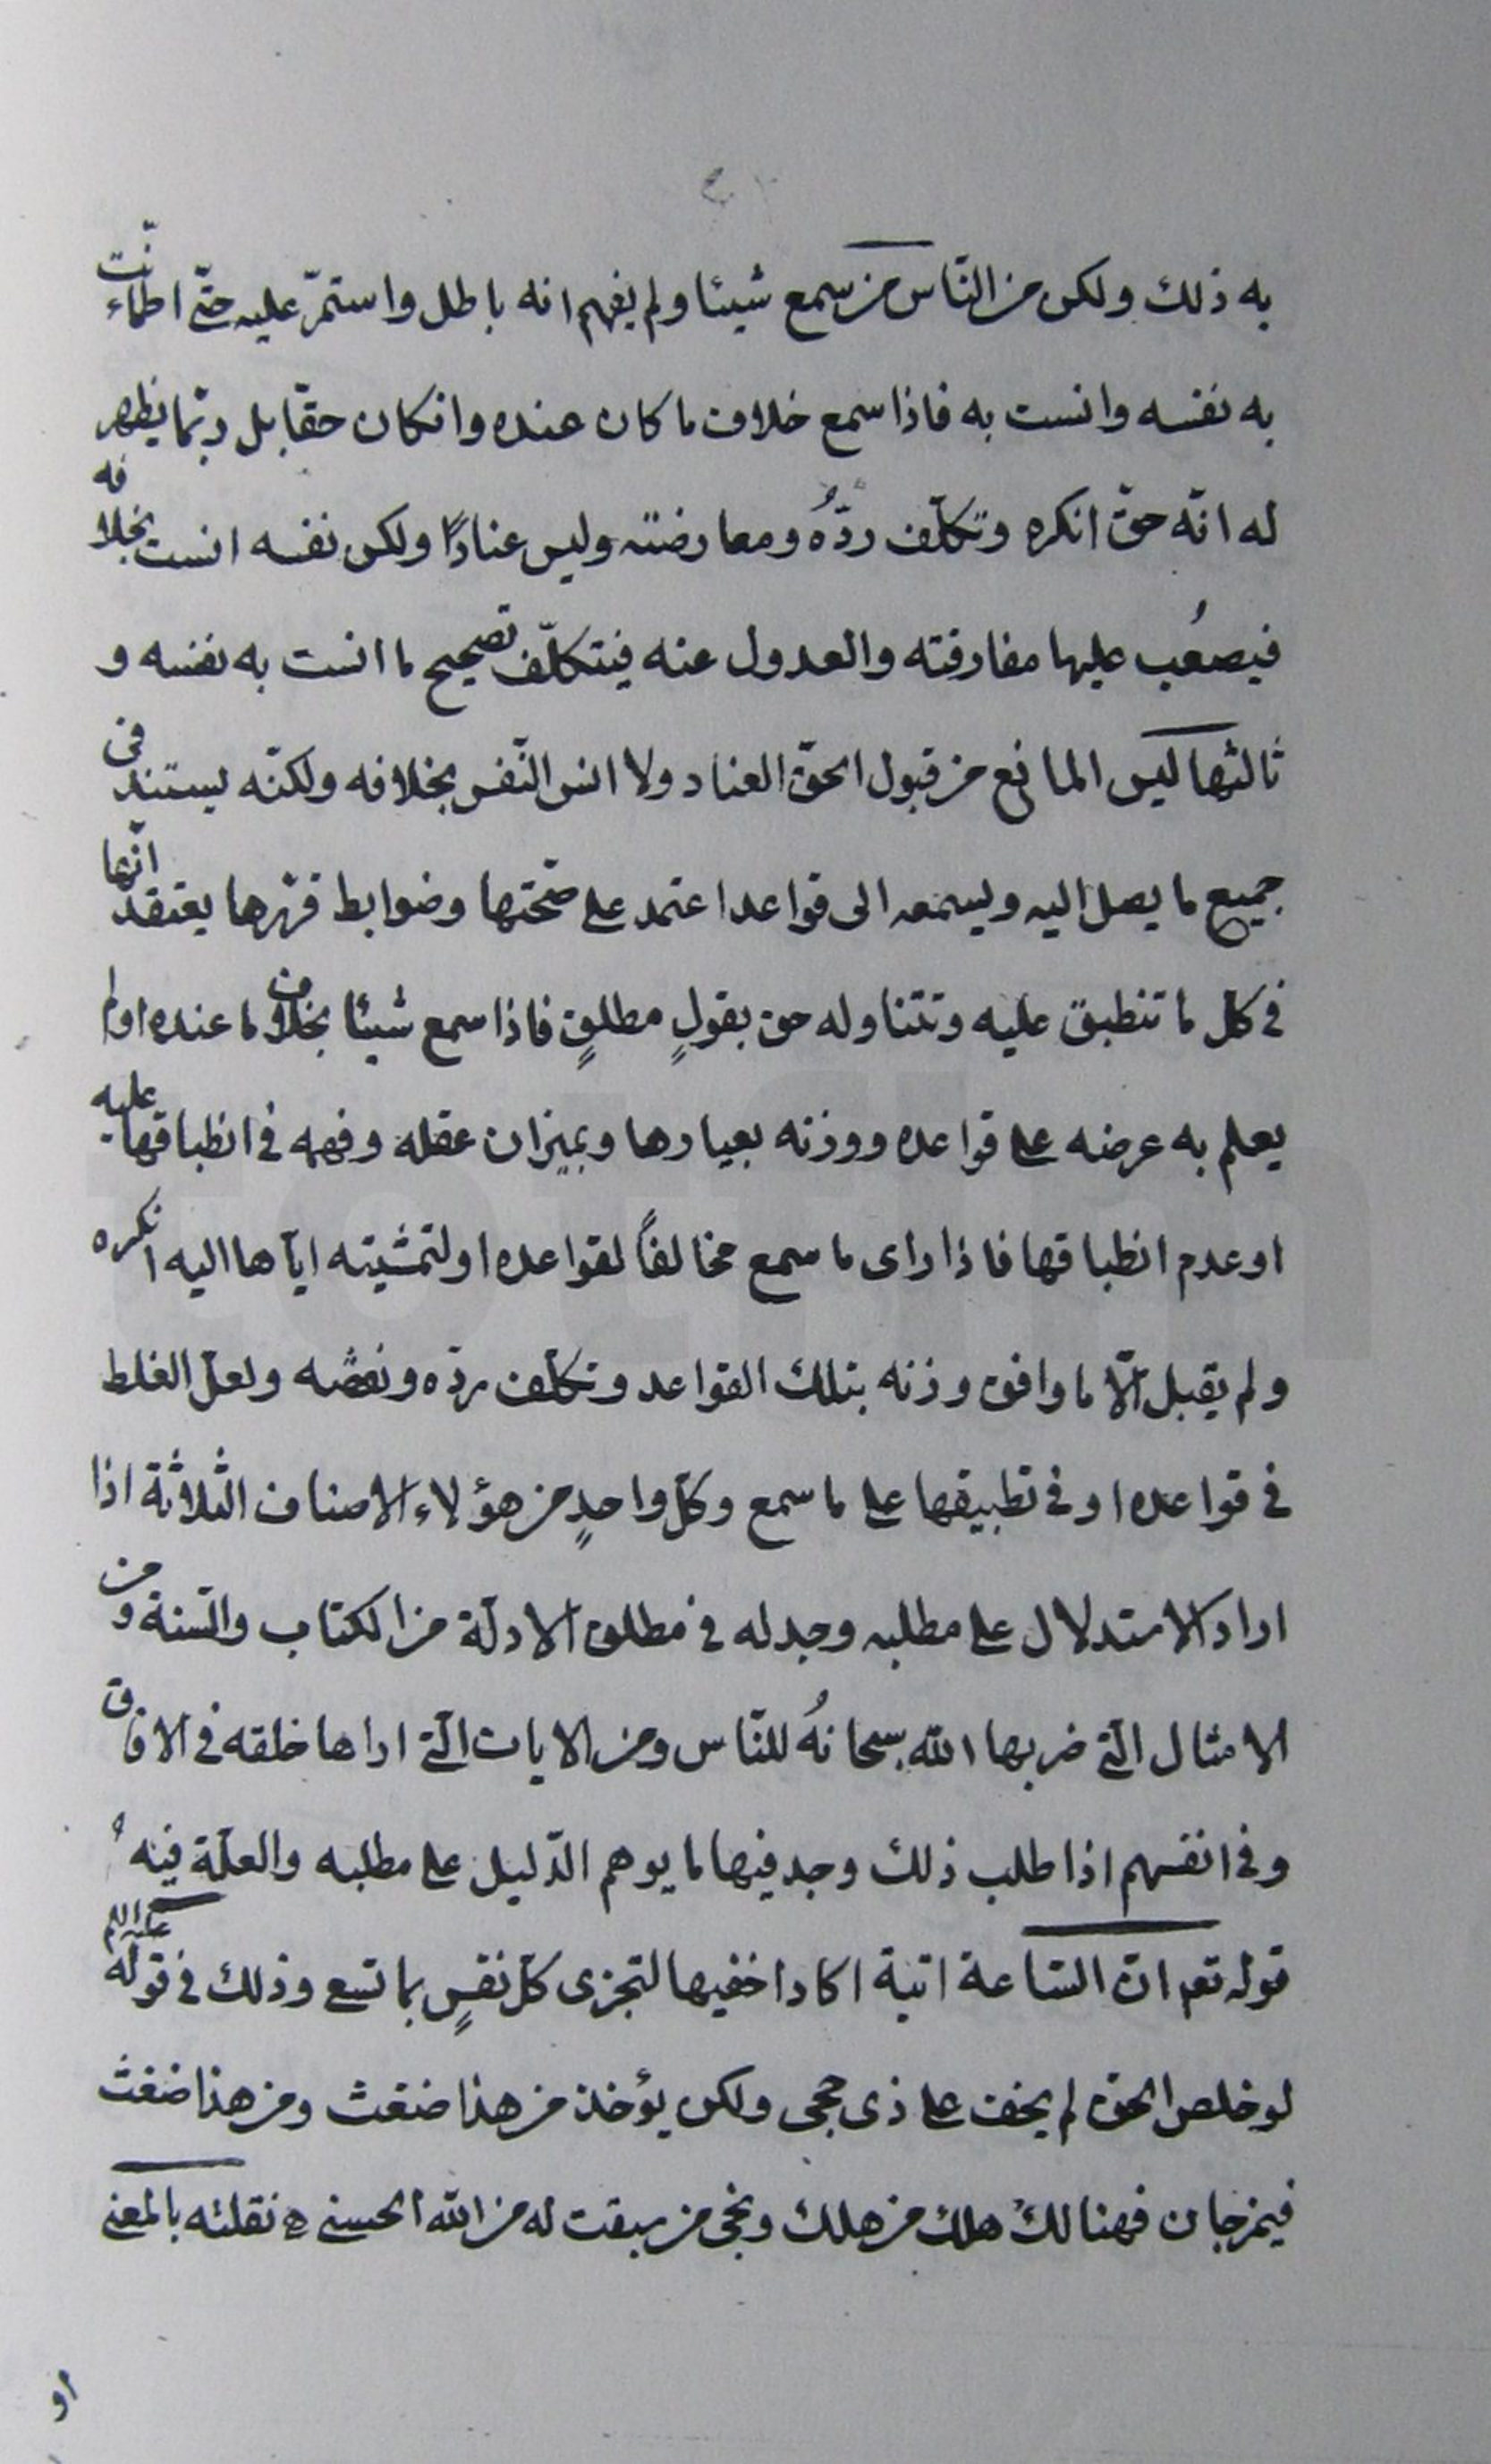 به ذلك ولكن من النّاس من سمع شيئا ولم يفهم انه باطل واستمرّ عليه حتّى اطمأنّت
به نفسه وانست به فاذا سمع خلاف ما كان عنده وانكان حقّا بل ربّما يظهر
له انّه حقّ انكره وتكلّف ردّهُ ومعارضته وليس عنادًا ولكن نفسه انست بخلافه
فيصعُب عليها مفارقته والعدول عنه فيتكلّف تصحيح ما انست به نفسه و
ثالثها ليس المانع من قبول الحقّ العناد ولا انس النّفس بخلافه ولكنّه يستند فى
جميع ما يصل اليه ويسمعه الى قواعد اعتمد على صحّتها وضوابط قرّرها يعتقد انّها
فى كل ما تنطبق عليه وتتناوله حق بقولٍ مطلقٍ فاذا سمع شيئا بخلاف ما عنده او لم
يعلم به عرضه على قواعده ووزنه بعيارها وبميزان عقله وفهمه فى انطباقها عليه
او عدم انطباقها فاذا راى ما سمع مخالفاً لقواعده او لتمشيته ايّاها اليه انكره
ولم يقبل الّا ما وافق وزنه بتلك القواعد وتكلّف ردّه ونقضه ولعلّ الغلط
فى قواعده او فى تطبيقها على ما سمع وكلّ واحدٍ من هؤلاء الاصناف الثّلاثة اذا
اراد الاستدلال على مطلبه وجد له فى مطلق الادلّة من الكتاب والسّنة ومن
الامثال الّتى ضربها الله سبحانهُ للنّاس ومن الايات الّتى اراها خلقه فى الافاق
وفى انفسهم اذا طلب ذلك وجد فيها ما يوهم الدّليل على مطلبه والعلّة فيه
قوله تعم انّ السّاعة اتية اكاد اخفيها لتجزى كلّ نفسٍ بما تسع وذلك فى قوله عليه السلم
لو خلص الحق لم يخف على ذى حجى ولكن يؤخذ من هذا ضغث ومن هذا ضغث
فيمزجان فهنالك هلك من هلك ونجى من سبقت له من الله الحسنى ه نقلته بالمعنى
او